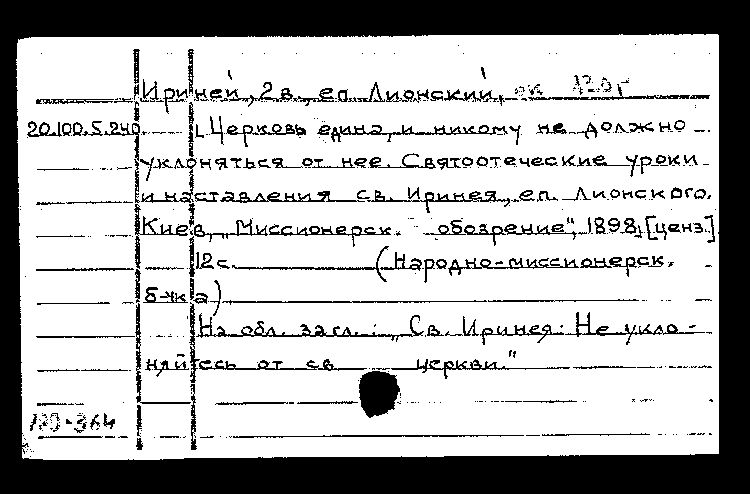 Ириней, 2 в., еп. Лионский, ок 120г
20.100.5.240. [Церковь едина, и никому не должно
уклоняться от нее. Святоотеческие уроки
и наставления св. Иринея, еп. Лионского.
Киев, „Миссионерск. обозрение", 1898, [ценз.]
12 с. (Народно-миссионерск.
б-чка)
На обл. загл.: „Св. Иринея: Не укло-
няйтесь от св церкви."
-364